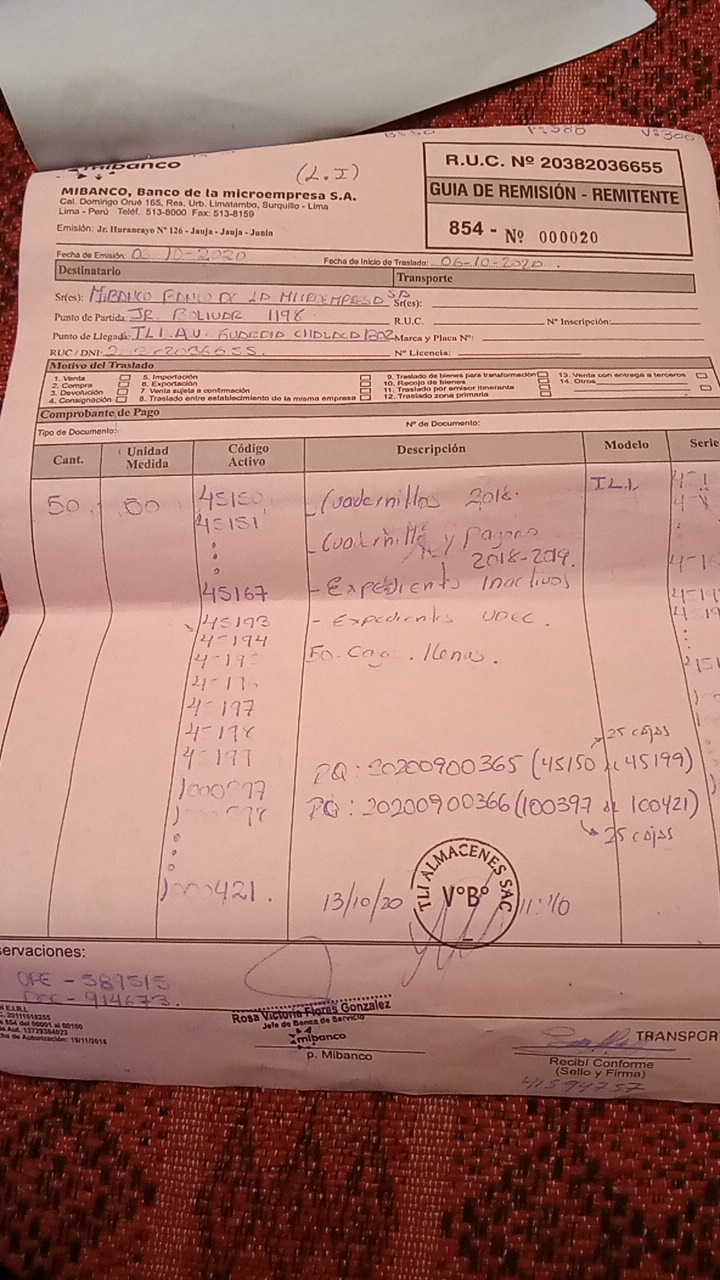 mibanco
(L.I)
MIBANCO, Banco de la microempresa S.A.
Cal. Domingo Orué 165, Res. Urb. Limatambo, Surquillo - Lima
Lima - Perú Teléf. 513-8000 Fax: 513-8159
Emisión: Jr. Huancayo Nº 126 - Jauja - Jauja - Junin
R.U.C. Nº 20382036655
GUIA DE REMISIÓN - REMITENTE
854 - Nº 000020
Fecha de Emisión: 06-10-2020 Fecha de Inicio de Traslado: 06-10-2020.
Destinatario Transporte
Sr(es): MIBANCO BANCO DE LA MICROEMPRESA SA Sr(es):
Punto de Partida: JR. BOLIVAR 1198 R.U.C. Nº Inscripción:
Punto de Llegada: TLI. AV. 1302 Marca y Placa Nº:
RUC / DNI: Nº Licencia:
Motivo del Traslado
1. Venta 5. Importación 9. Traslado de bienes para transformación 13. Venta con entrega a terceros
2. Compra 6. Exportación 10. Recojo de bienes 14. Otros
3. Devolución 7. Venta sujeta a confirmación 11. Traslado por emisor itinerante
4. Consignación 8. Traslado entre establecimiento de la misma empresa 12. Traslado zona primaria
Comprobante de Pago
Tipo de Documento: Nº de Documento:
Cant. Unidad Medida Código Activo Descripción Modelo Serie
50. 50 45150 - Cuadernillos 2018. TLI
45151 - y Pagares
2018-2019.
45167 - Expedientes Inactivos
45193 - Expedientes
45194
50. Cajas llenas.
45197
45198
45199
25 cajas
PQ: 20200900365 (45150 al 45199)
PQ: 20200900366 (100397 al 100421)
25 cajas
1000421.
13/10/20 TLI ALMACENES SAC VºBº 11:40
servaciones:
OPE - 587515
DOC - 914673.
Rosa Victoria Flores Gonzalez
Jefe de Banca de Servicio
mibanco
p. Mibanco
TRANSPOR
Recibí Conforme
(Sello y Firma)
41594757